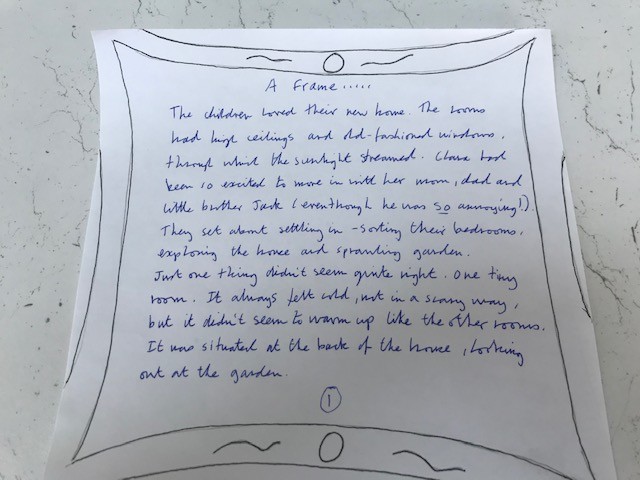 A Frame.....
The children loved their new home. The rooms
had high ceilings and old-fashioned windows,
through which the sunlight streamed. Clara had
been so excited to move in with her mom, dad and
little brother Jack (eventhough he was so annoying!).
They set about settling in - sorting their bedrooms,
exploring the house and sprawling garden.
Just one thing didn't seem quite right. One tiny
room. It always felt cold, not in a scary way,
but it didn't seem to warm up like the other rooms.
It was situated at the back of the house, looking
out at the garden.
1